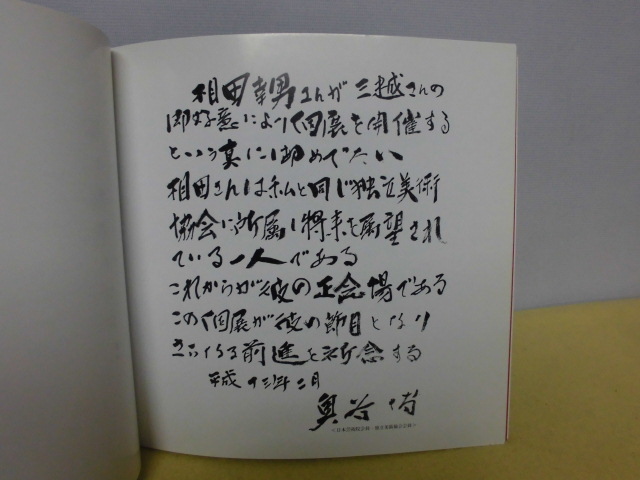 相田幸男さんが三越さんの
御好意により個展を開催する
という真に御めでたい
相田さんは私と同じ独立美術
協会に所属し将来を展望され
ている一人である
これからが彼の正念場である
この個展が彼の節目となり
さらなる前進を祈念する
平成十三年二月
奥谷博